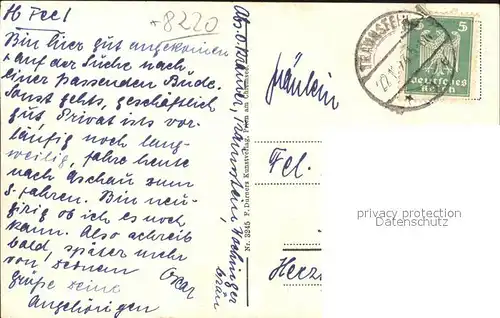 *8220
H Feel
Bin hier gut angekommen
+ auf der Suche nach
einer passenden Bude.
Sonst gehts, geschäftlich
gut Privat ists vor-
läufig noch lang-
weilig, fahre heute
nach Aschau zum
s. fahren. Bin neu-
girig ob ich es noch
kann. Also schreib
bald, später mehr
von deinem Oskar
grüße deine
Angehörigen
Abs. O. Traunstein,
Nr. 3245 F. Dürners Kunstverlag, Prien am Chiemsee
Fräulein
Fel.
Herz
TRAUNSTEIN
5
Deutsches
Reich
privacy protection
watermark